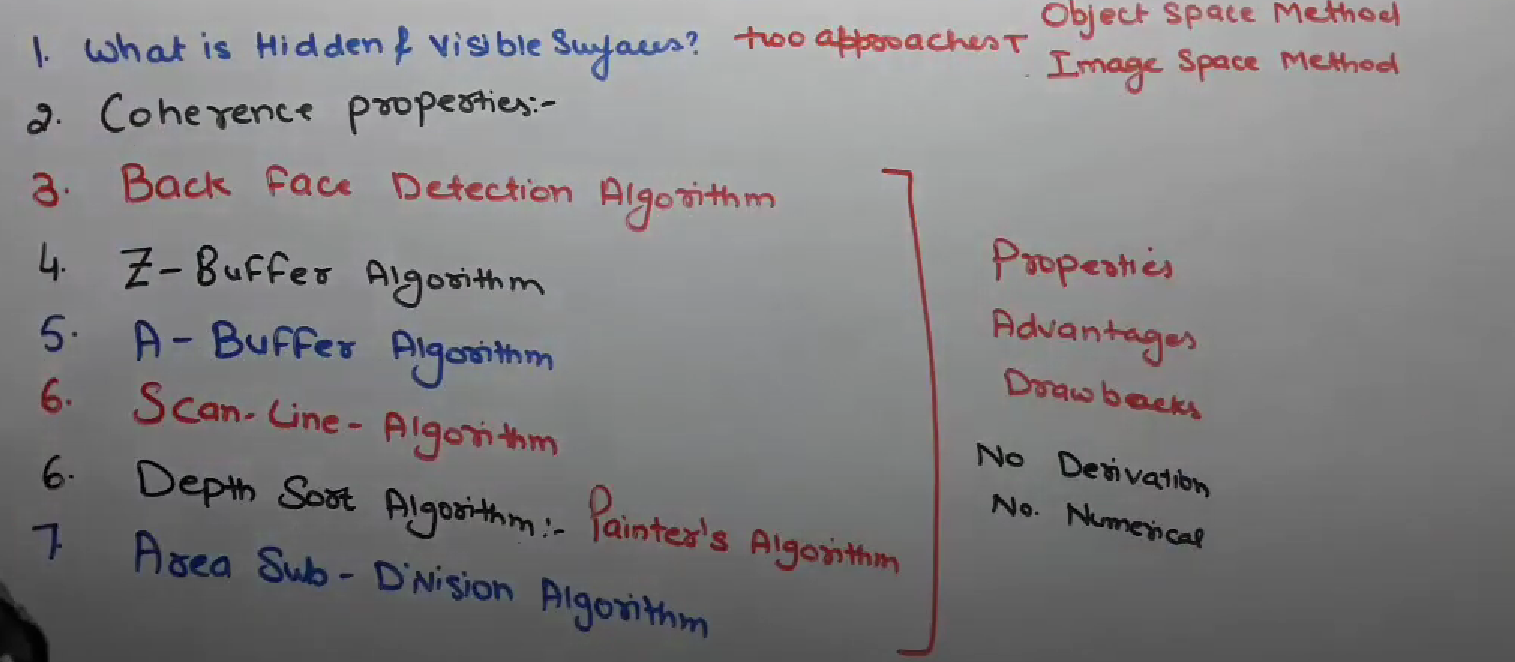 1. What is Hidden & Visible Surfaces? two approaches
Object Space Method
Image Space Method
2. Coherence properties:-
3. Back Face Detection Algorithm
4. Z-Buffer Algorithm
5. A-Buffer Algorithm
6. Scan-Line-Algorithm
6. Depth Sort Algorithm:- Painter's Algorithm
7 Area Sub-Division Algorithm
Properties
Advantages
Drawbacks
No Derivation
No. Numerical